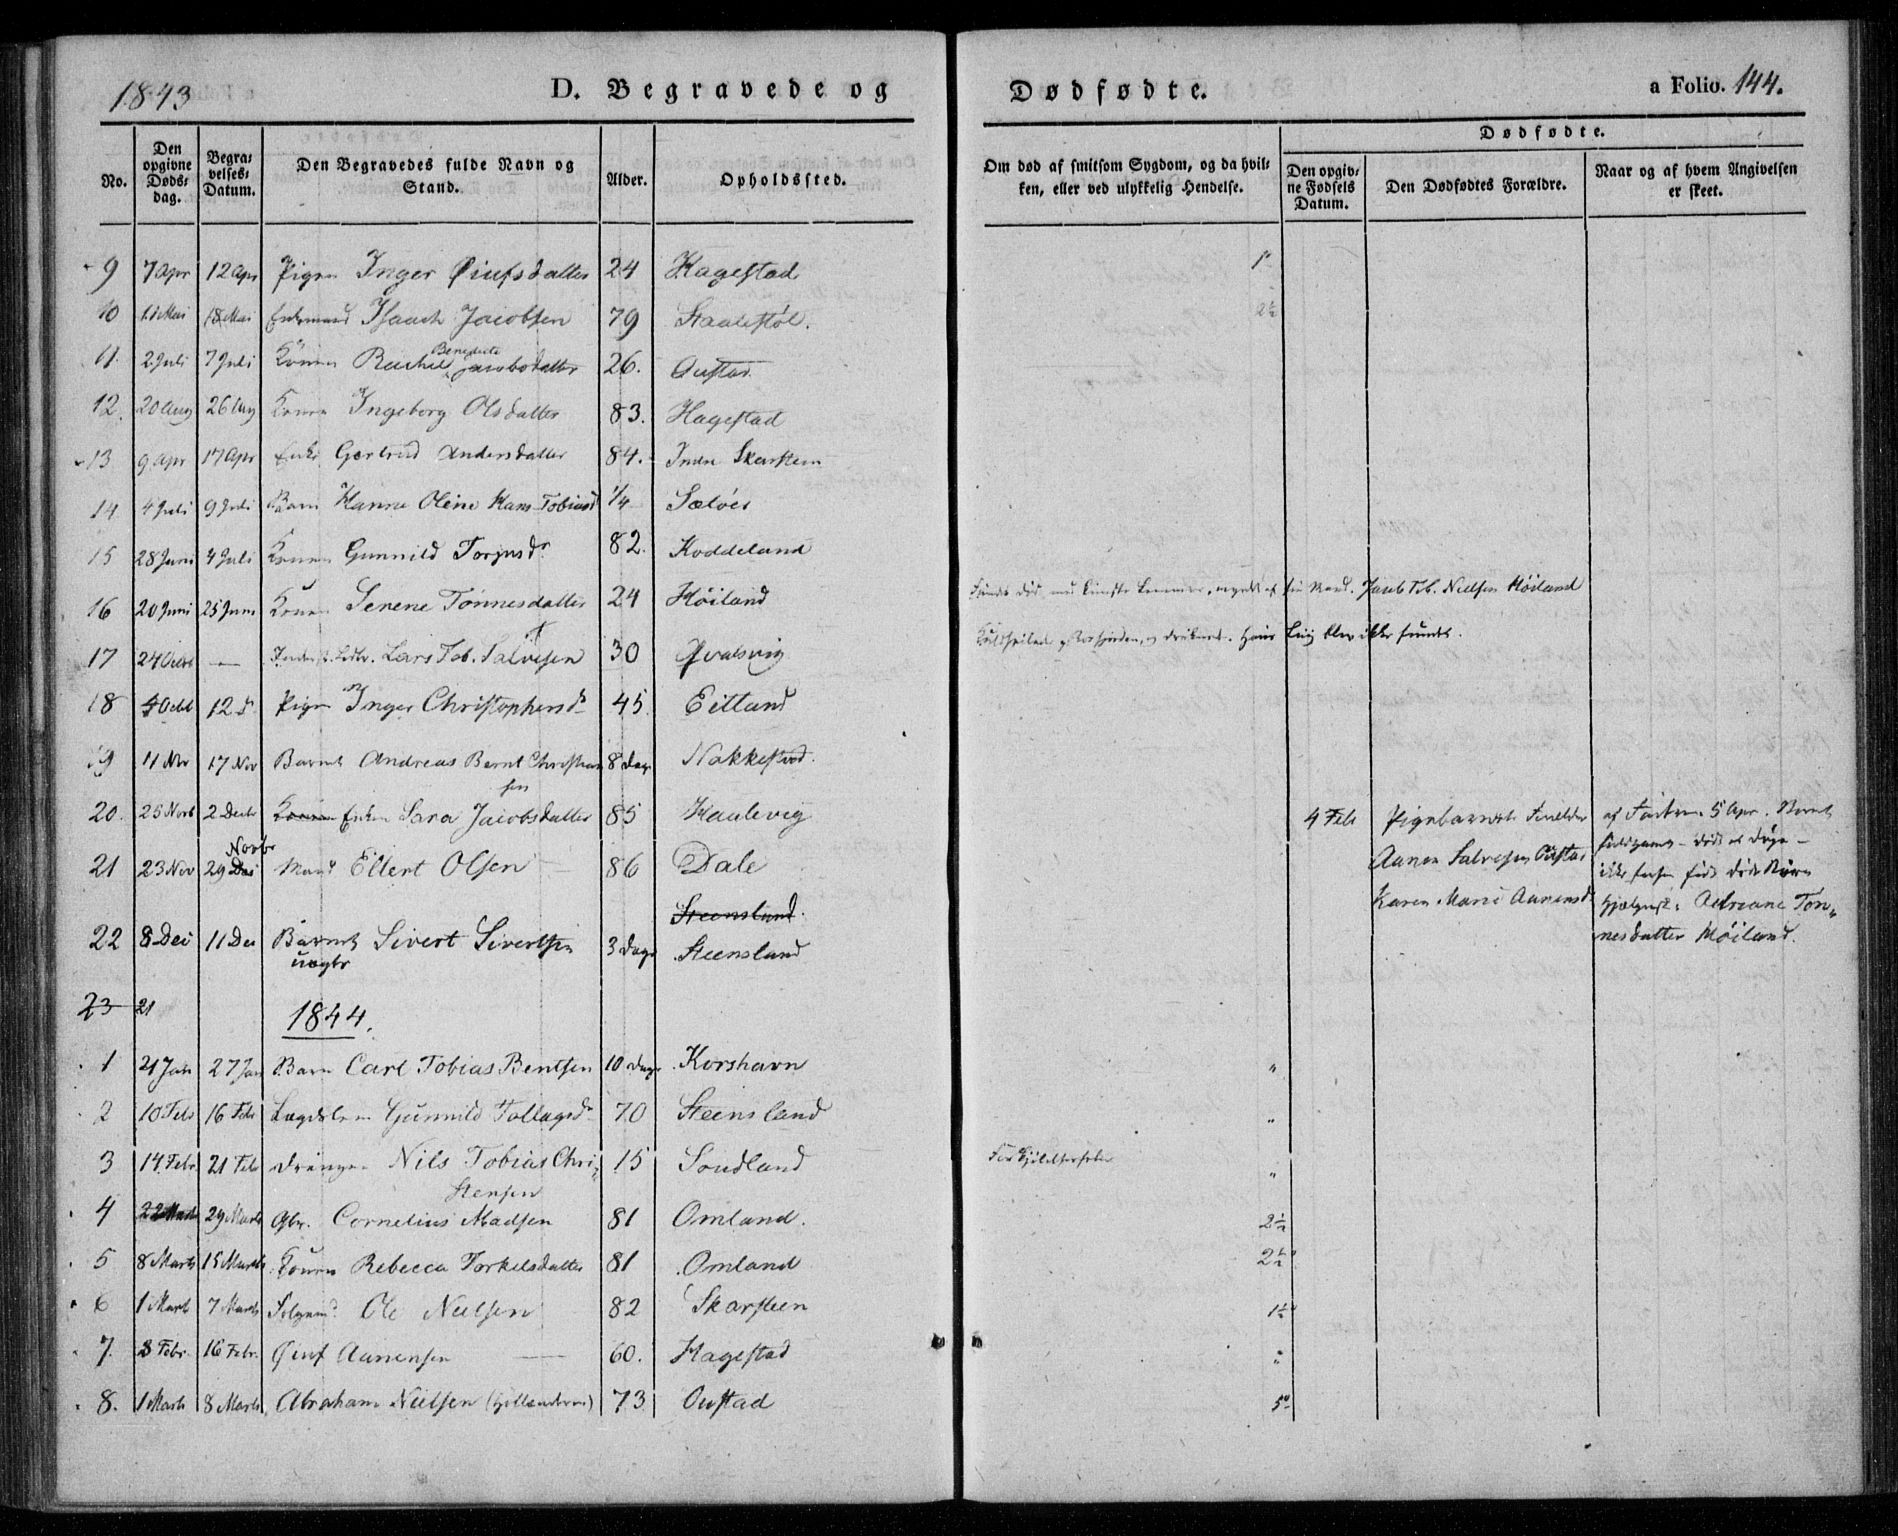 1843
D. Begravede og
Dødfødte.
a Folio. 144.
No.
Den opgivne Døds-dag.
Begra-velses-Datum.
Den Begravedes fulde Navn og Stand.
Alder.
Opholdssted.
Om død af smitsom Sygdom, og da hvil-ken, eller ved ulykkelig Hendelse.
Dødfødte.
Den opgiv-ne Fødsels Datum.
Den Dødfødtes Forældre.
Naar og af hvem Angivelsen er skeet.
9 7 Apr 12 Apr Pigen Inger Øiufsdatter 24 Hagestad
10 11 Mai 18 Mai Enkemand Isaach Jacobsen 79 Staalestøl.
11. 2 Juli 7 Juli Konen Rachel Benedicte Jacobsdatter 26. Oustad
12. 20 Aug 26 Aug Konen Ingeborg Olsdatter 83. Hagestad
13 9 Apr 17 Apr Enke Gertrud Andersdatter 84. Indre Skarsteen
14 4 Juli 9 Juli Barn Hanne Oline Hans Tobiasd 1/4 Sæløer
15 28 Juni 4 Juli Konen Gunnild 82. Koddeland
16 20 Juni 25 Juni Konen Serene Tønnesdatter 24 Høiland
Jacob Tob. Nielsen Høiland
17 24 Octbr — Lars Tob. Salvesen 30 Qvalsvig
Hans Liig blev ikke fundet.
18 Octb 12 d Pigen Inger Christophersd 45 Eitland
19 11 Nov 17 Nov Barnet Andreas Bernt Christian 8 Dage Nakkestad.
sen
20. 25 Novb 2 Decbr Konen Enken Sara Jacobsdatter 85 Haalevig
4 Feb Pigebarnet
af Faderen 5 Apr.
21 23 Nov 29 Novbr Mand Ellert Olsen 86 Dale
Aanen Salvesen
Karen Marie Aanensd
Steensland.
Adriane Tøn-
22 8 Dec 11 Dec Barnet Sivert Sivertsen 3 Dage Steensland
uægte
nesdatter Høiland.
23 21
1844.
1 21 Jan 27 Jan Barn Carl Tobias Bentsen 10 Dage Korshavn
2 10 Feb 16 Febr Lægdslem Gunnild Tollagsd 70 Steensland
3 14 Febr 21 Febr Drengen Nils Tobias Chri- 15 Sondland
stensen
4 22 Marts 29 Marts Gbr. Cornelius Madsen 81 Omland. 2½
5 8 Marts 15 Marts Konen Rebecca Torkelsdatter 81 Omland 2½
6 1 Marts 7 Marts Ole Nielsen 82 Skarsteen 1½
7. 8 Febr. 16 Febr. Øiuf Aanensen — 60. Hagestad
8. 1 Marts 8 Marts Abraham Nielsen (Hollænderen) 73 Oustad